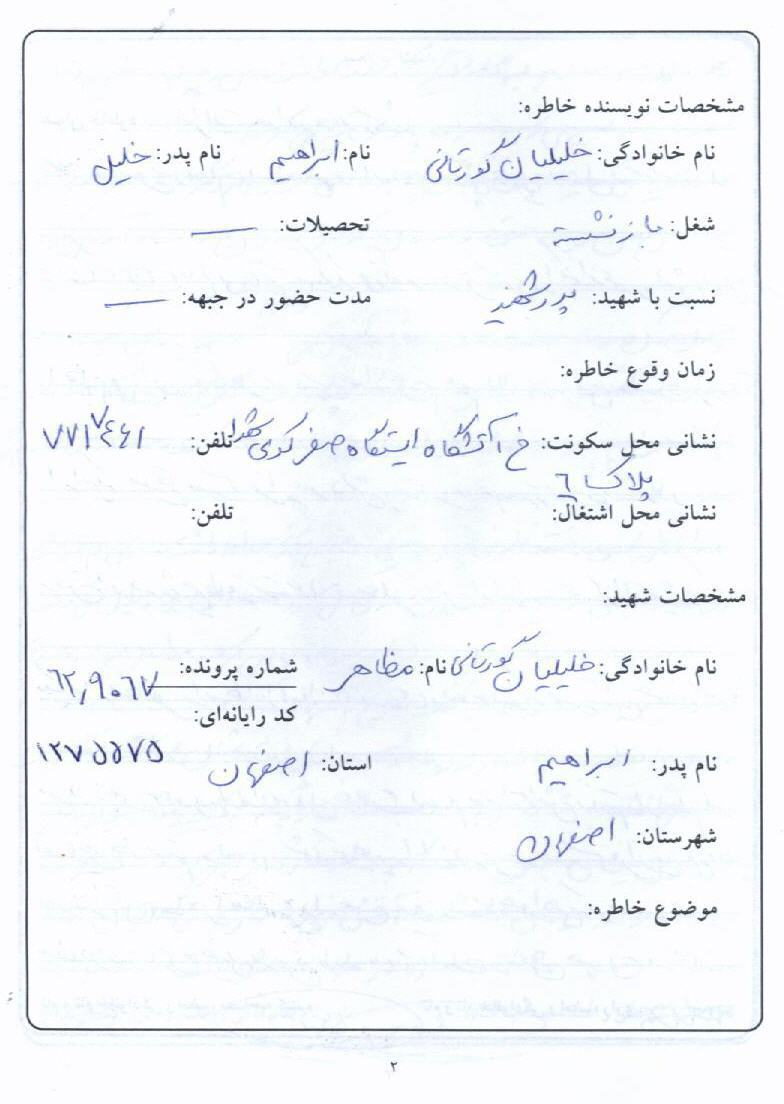 مشخصات نویسنده خاطره:
نام خانوادگی: خلیلیان کورتانی نام: ابراهیم نام پدر: خلیل
شغل: بازنشسته تحصیلات: —
نسبت با شهید: پدر شهید مدت حضور در جبهه: —
زمان وقوع خاطره:
نشانی محل سکونت: خ آتشگاه ایستگاه صفر کوی شهدا تلفن: ۷۷۱۷۴۶۱
پلاک ۶
نشانی محل اشتغال: تلفن:
مشخصات شهید:
نام خانوادگی: خلیلیان کورتانی نام: مظاهر شماره پرونده: ۶۲٫۹۰۶۷
کد رایانه‌ای:
نام پدر: ابراهیم استان: اصفهان ۱۲۷۵۵۷۵
شهرستان: اصفهان
موضوع خاطره:
۲